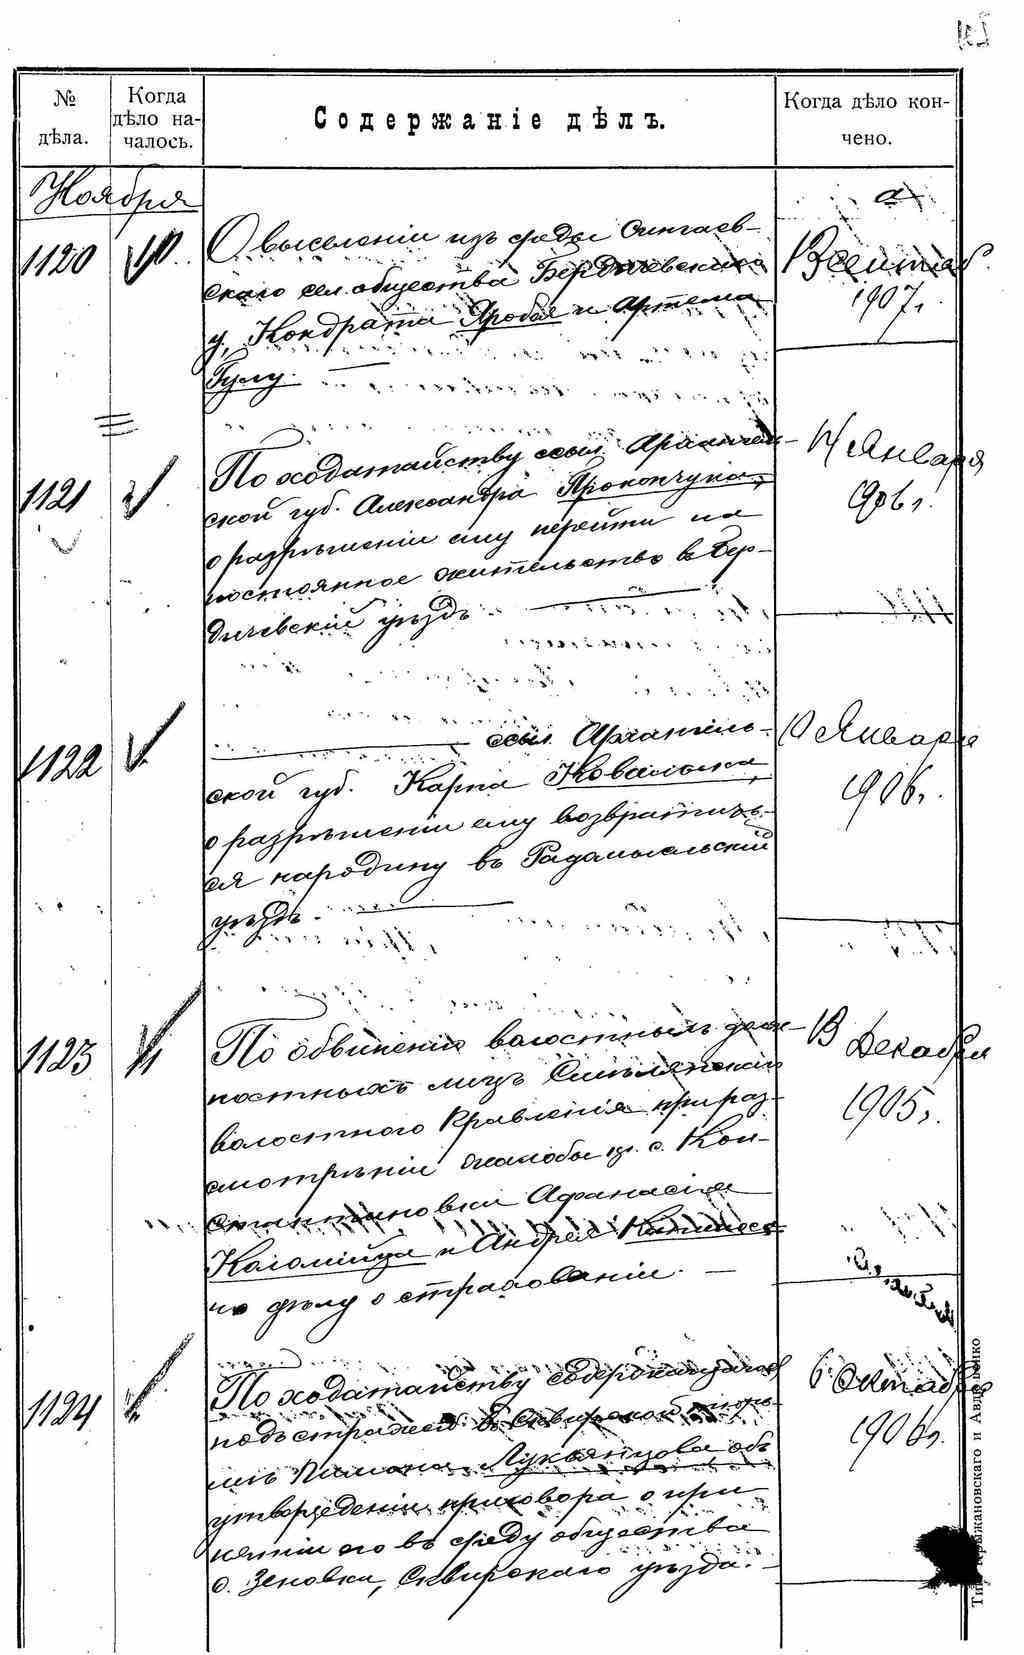 № дѣла.
Когда дѣло на-
чалось.
Содержаніе дѣлъ.
Когда дѣло кон-
чено.
Ноября
1120
О выселеніи изъ среды Сингаев-
скаго сел. общества Бердичевскаго
у. Кондрата Яробая и Артема
Гулу.
13 Сентяб.
1907 г.
1121
По ходатайству ссыл. Архангель-
ской губ. Александра Прокопчука,
о разрѣшеніи ему перейти на
постоянное жительство въ Бер-
дичевскій уѣздъ
14 Января
1906 г.
1122
ссыл. Архангель-
ской губ. Карпа Ковальчука,
о разрѣшеніи ему возвратить-
ся на родину въ Радомысльскій
уѣздъ.
10 Января
1906 г.
1123
По обвиненію волостныхъ долж-
ностныхъ лицъ Смѣлянскаго
волостного Правленія при раз-
смотрѣніи жалобы кр. с. Кон-
стантиновки Афанасія
Коломійца и Андрея
по дѣлу о страхованіи.
13 Декабря
1905 г.
1124
По ходатайству содержащагося
подъ стражей въ Сквирской тюрь-
мѣ Пимона Лукьянцова, объ
утвержденіи приговора о при
нятіи его въ среду общества
с. Зеновки, Сквирскаго уѣзда.
6 Октября
1906 г.
Тип. Крыжановскаго и Авдюшенко